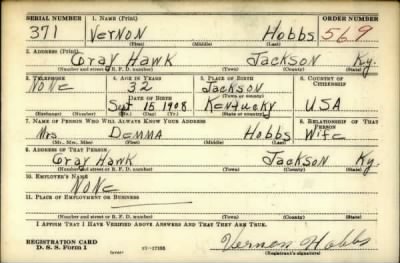 SERIAL NUMBER 1. NAME (Print) ORDER NUMBER
371 Vernon Hobbs 569
(First) (Middle) (Last)
2. ADDRESS (Print)
Gray Hawk Jackson Ky.
(Number and street or R. F. D. number) (Town) (County) (State)
3. TELEPHONE 4. AGE IN YEARS 5. PLACE OF BIRTH 6. COUNTRY OF CITIZENSHIP
None 32 Jackson
(Town or county)
DATE OF BIRTH
15 1908 Kentucky USA
(Exchange) (Number) (Mo.) (Day) (Yr.) (State or country)
7. NAME OF PERSON WHO WILL ALWAYS KNOW YOUR ADDRESS 8. RELATIONSHIP OF THAT PERSON
Mrs Demma Hobbs Wife
(Mr., Mrs., Miss) (First) (Middle) (Last)
9. ADDRESS OF THAT PERSON
Gray Hawk Jackson Ky.
(Number and street or R. F. D. number) (Town) (County) (State)
10. EMPLOYER'S NAME
None
11. PLACE OF EMPLOYMENT OR BUSINESS
(Number and street or R. F. D. number) (Town) (County) (State)
I AFFIRM THAT I HAVE VERIFIED ABOVE ANSWERS AND THAT THEY ARE TRUE.
REGISTRATION CARD
D. S. S. Form 1
Vernon Hobbs
(Registrant's signature)